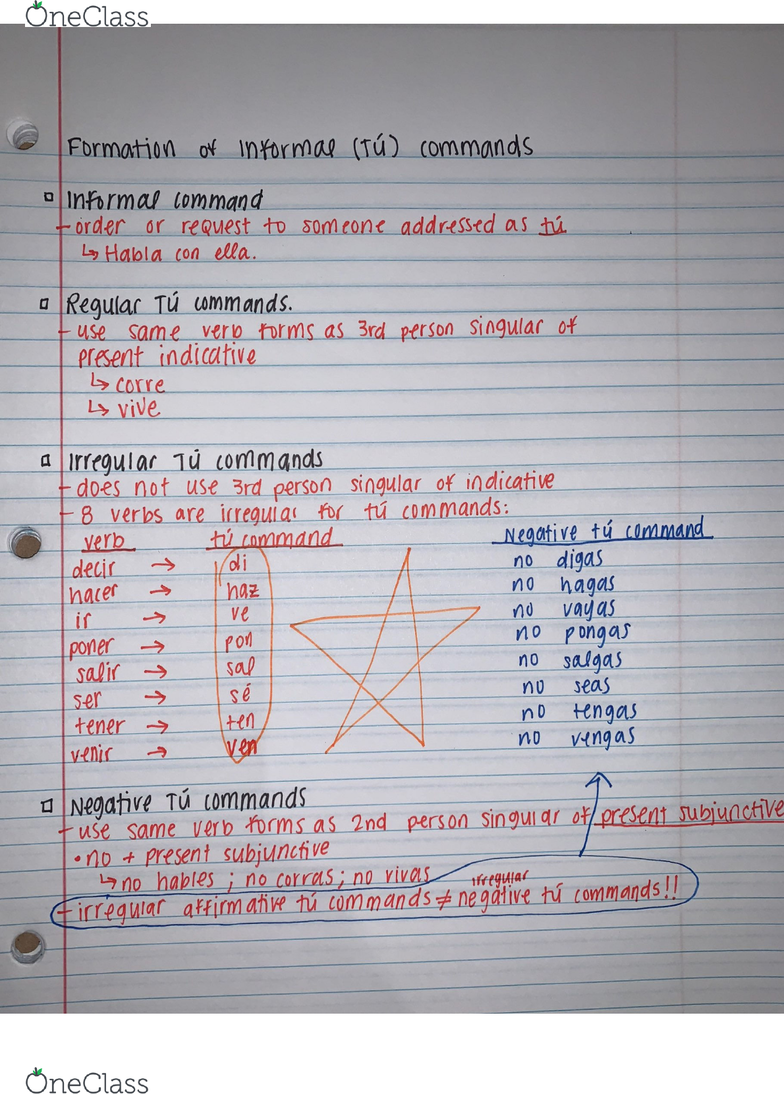 OneClass
Formation of Informal (Tú) commands
Informal command
- order or request to someone addressed as tú
↳ Habla con ella.
Regular Tú commands.
- use same verb forms as 3rd person singular of
present indicative
↳ corre
↳ vive
Irregular Tú commands
- does not use 3rd person singular of indicative
- 8 verbs are irregular for tú commands:
verb tú command Negative tú command
decir → di no digas
hacer → haz no hagas
ir → ve no vayas
poner → pon no pongas
salir → sal no salgas
ser → sé no seas
tener → ten no tengas
venir → ven no vengas
Negative Tú commands
- use same verb forms as 2nd person singular of present subjunctive
• no + present subjunctive
↳ no hables; no corras; no vivas
irregular
- irregular affirmative tú commands ≠ negative tú commands!!
OneClass